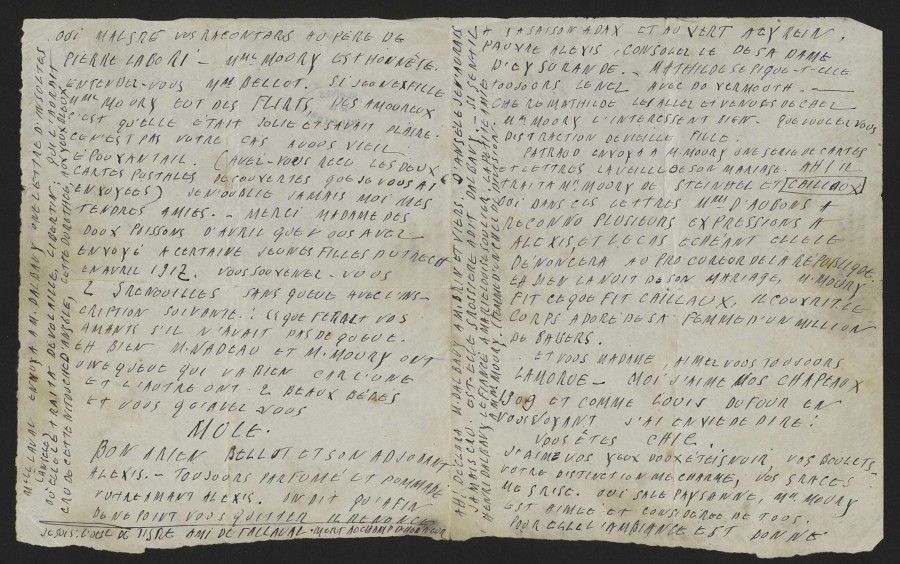 OUI MALGRÉ VOS RACONTARS AU PÈRE DE
PIERRE LABORI — MME MOURY EST HONNÊTE.
ENTENDEZ-VOUS MME BELLOT. SI JEUNE FILLE
MME MOURY EUT DES FLIRTS DES AMOUREUX
C'EST QU'ELLE ÉTAIT JOLIE ET SAVAIT PLAIRE.
CE N'EST PAS VOTRE CAS VIEIL
EPOUVANTAIL. (AVEZ-VOUS REÇU LES DEUX
CARTES POSTALES QUE JE VOUS AI
ENVOYÉES) J'EN OUBLIE JAMAIS MOI MES
TENDRES AMIES. — MERCI MADAME DES
DOUX POISSONS D'AVRIL QUE VOUS AVEZ
ENVOYÉ A CERTAINE JEUNES FILLES
EN AVRIL 1912. VOUS SOUVENEZ-VOUS
2 GRENOUILLES SANS QUEUE AVEC L'INS-
CRIPTION SUIVANTE: "QUE FERAIT VOS
AMANTS S'IL N'AVAIT PAS DE QUEUE.
EH BIEN M. NADEAU ET M. MOURY ONT
UNE QUEUE QUI VA BIEN CAR L'UNE
ET L'AUTRE ONT 2 BEAUX BÉBÉS
ET VOUS QU'AVEZ VOUS
MULE.
BON ARIEN BELLOT ET SON ADJUDANT
ALEXIS. — TOUJOURS PARFUMÉ ET POMMADÉ
VOTRE AMANT ALEXIS. ON DIT QU'AFIN
DE NE POINT VOUS QUITTER IL RENONCE
JE SUIS L'OEIL DE TIGRE AMI DE FALLAVAL. MORT AU CHAMP D'HONNEUR
MELLE LAVAL ENVOYA A M. DALBAVY UNE LETTRE D'INSULTES
(ANGÈLE)
OÙ ELLE LE TRAITA DE VOLAILLE, LIBERTIN, QU'IL AURAIT
CRU DE CETTE SAINTE NITOUCHE D'ANGÈLE, CETTE AUX YEUX DOUX
AH! DÉCLARA M. DALBAVY AMI BRIVE ET VIERS, D'ANGÈLE JE N'AURAIS
JAMAIS CRU. EST-ELLE GROSSIÈRE A DIT DALBAVY.
HENRI DALBAVY LE FIANCÉ A MARIE LOUISE SOULIER, LA PETITE AMIE
A MME MOURY.
A LA SAISON A DAX ET AU VERT A EYREIN.
PAUVRE ALEXIS, CONSOLEZ LE DE SA DAME
D'EYGURANDE. — MATHILDE SE PIQUE-T-ELLE
TOUJOURS LE NEZ AVEC DU VERMOUTH. —
CHÈRE MATHILDE LES ALLEZ ET VENUES DE CHEZ
MME MOURY L'INTÉRESSENT BIEN. QUE VOULEZ VOUS
DISTRACTION DE VIEILLE FILLE.
PATRAUD ENVOYA A M. MOURY UNE SÉRIE DE CARTES
ET LETTRES LA VEILLE DE SON MARIAGE. AH! IL
TRAITA ME MOURY DE STEINHEL ET CAILLAUX
OUI DANS CES LETTRES MME D'AUBONS A
RECONNU PLUSIEURS EXPRESSIONS A
ALEXIS, ET LE CAS ECHÉANT ELLE LE
DÉNONCERA AU PROCUREUR DE LA RÉPUBLIQUE.
EH BIEN LA NUIT DE SON MARIAGE, M. MOURY
FIT CE QUE FIT CAILLAUX, IL COUVRIT LE
CORPS ADORÉ DE SA FEMME D'UN MILLION
DE BAISERS.
ET VOUS MADAME, AIMEZ VOUS TOUJOURS
LAMORUE — MOI J'AIME VOS CHAPEAUX
1909 ET COMME LOUIS DUFOUR EN
VOUS VOYANT J'AI ENVIE DE DIRE:
VOUS ÊTES CHIC.
J'AIME VOS YEUX DOUX ÉTEIGNOIR, VOS BOULETS,
VOTRE DISTINCTION ME CHARME, VOS GRÂCES
ME GRISE. OUI SALE PAYSANNE, MME MOURY
EST AIMÉE ET CONSIDÉRÉE DE TOUS.
POUR ELLE L'AMBIANCE EST DONNÉ